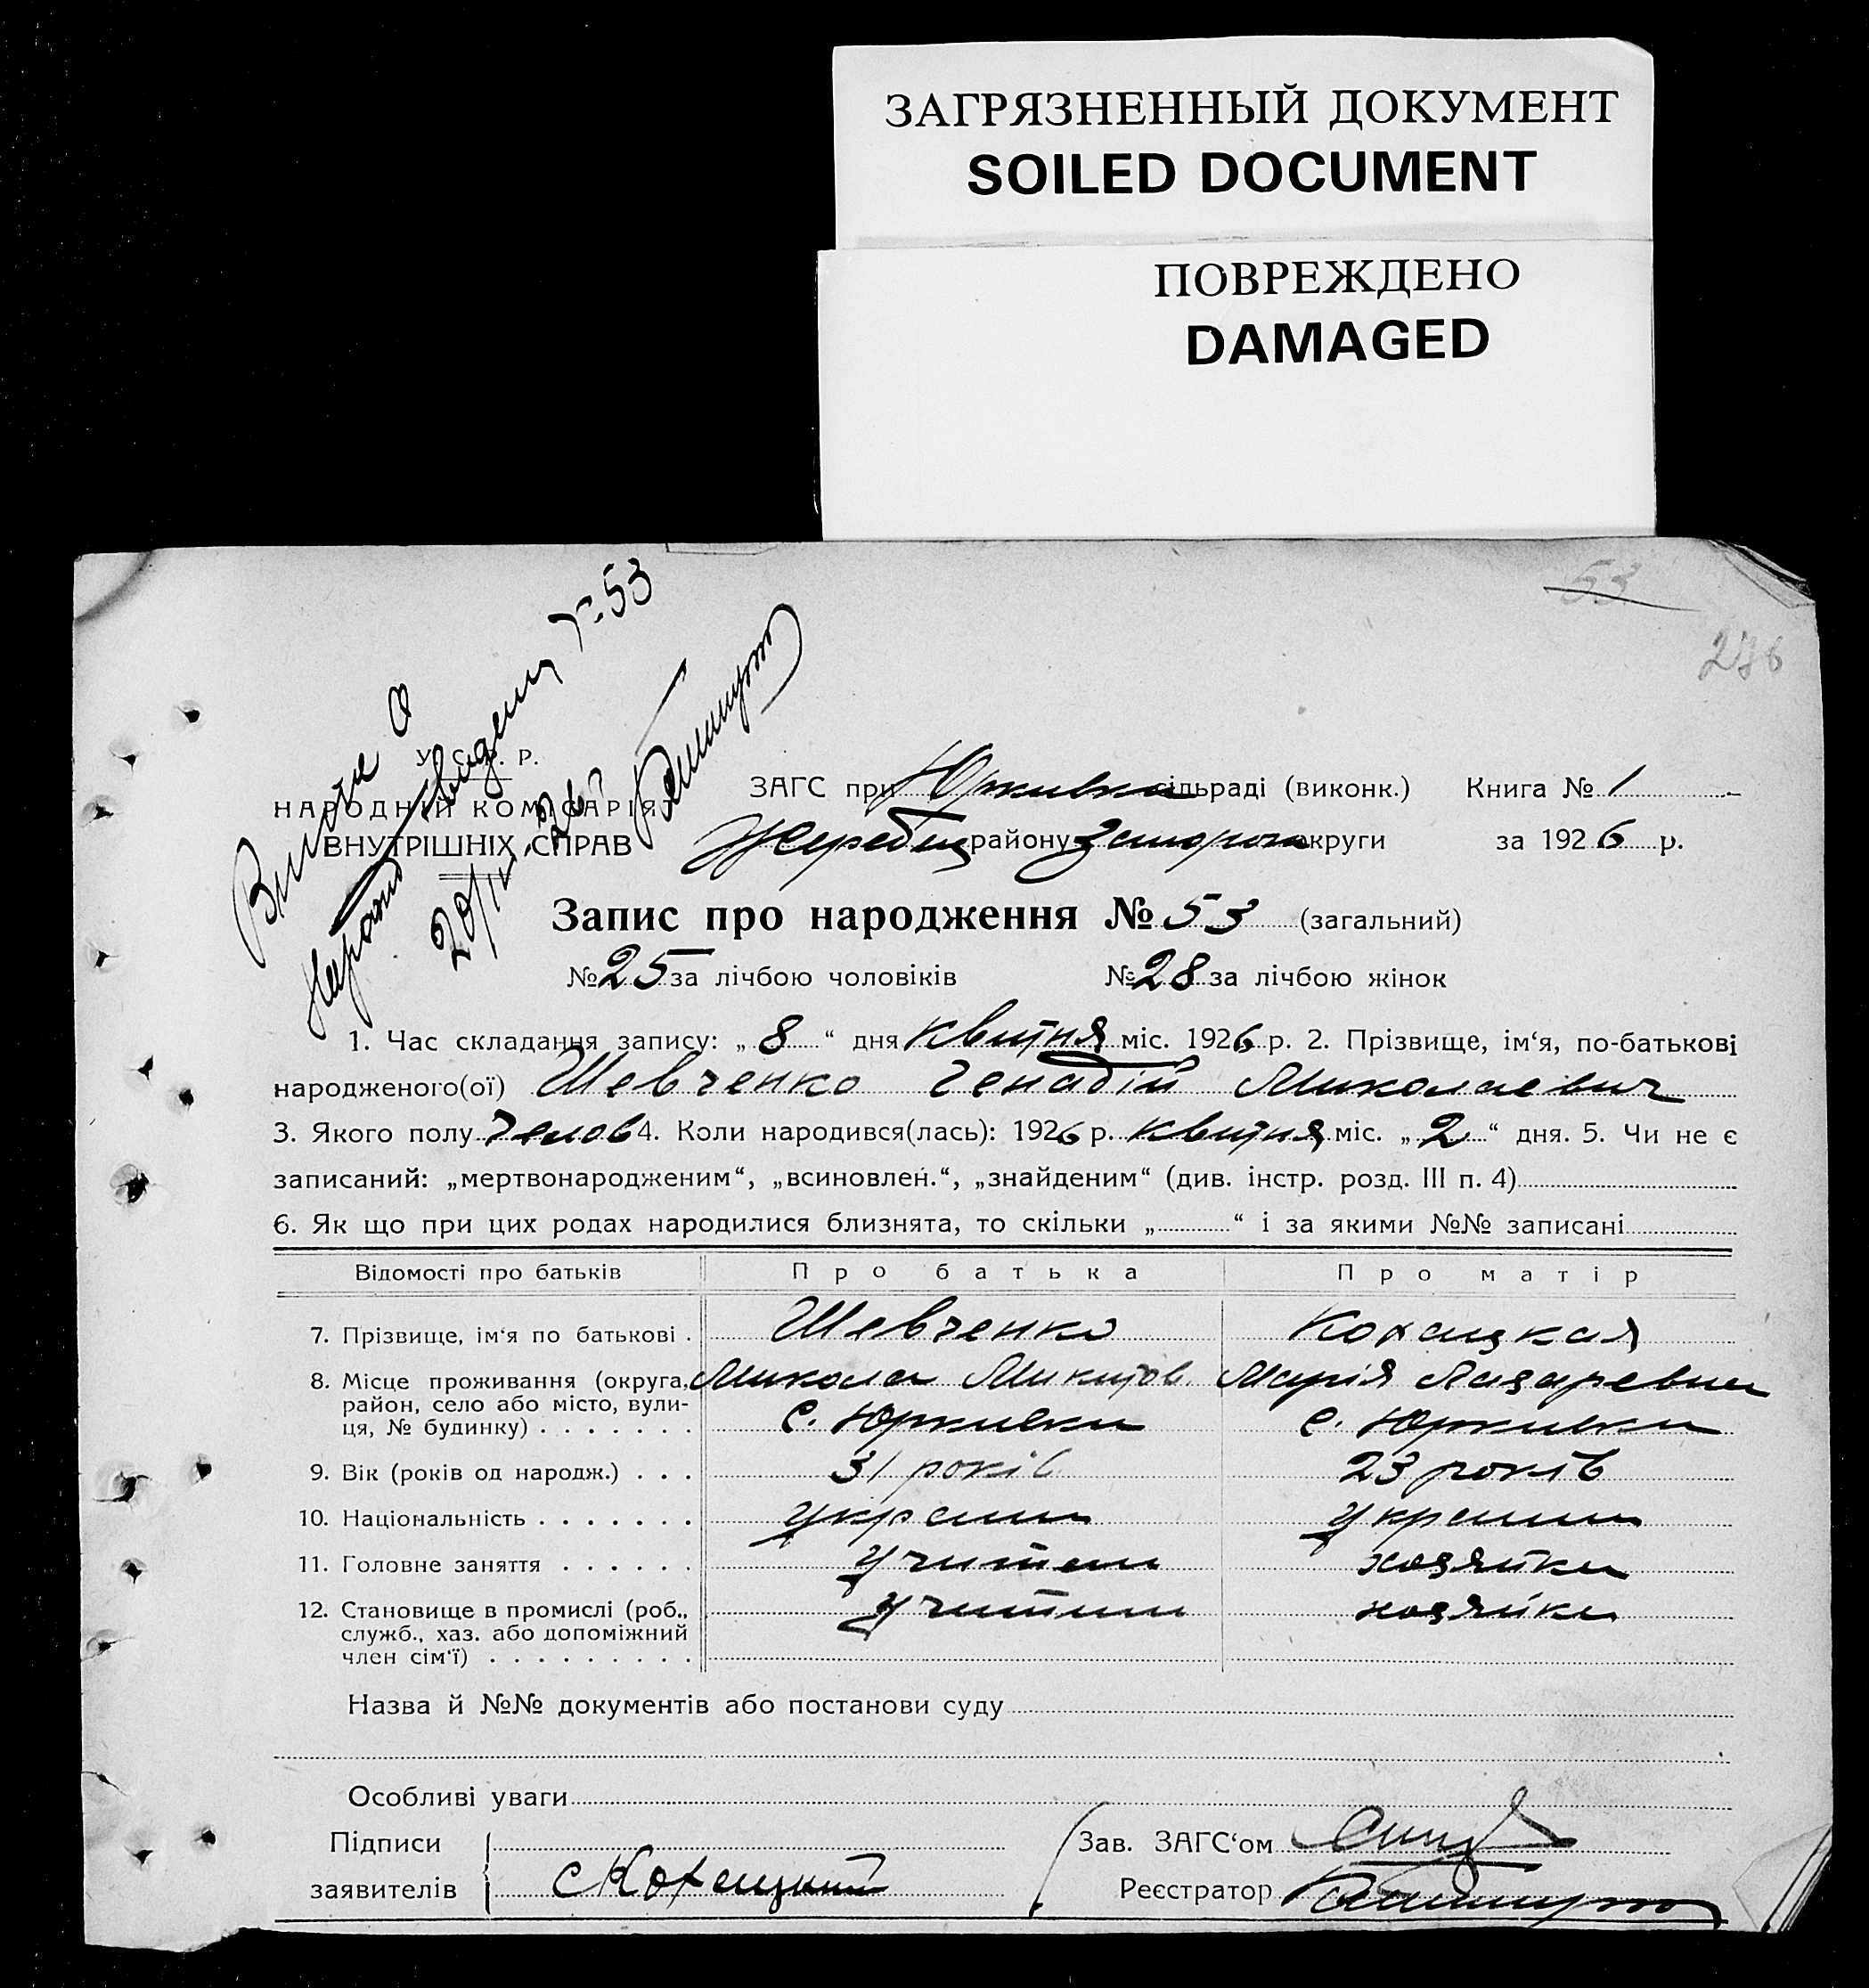 ЗАГРЯЗНЕННЫЙ ДОКУМЕНТ
SOILED DOCUMENT
ПОВРЕЖДЕНО
DAMAGED
53
276
№ 53
У. С. Р. Р.
НАРОДНІЙ КОМІСАРІЯТ
ВНУТРІШНІХ СПРАВ
ЗАГС при Юрківка сільраді (виконк.) Книга № 1
Жеребец району Запорож округи за 1926 р.
Запис про народження № 53 (загальний)
№ 25 за лічбою чоловіків № 28 за лічбою жінок
1. Час складання запису: „ 8 “ дня квітня міс. 1926 р. 2. Прізвище, ім‘я, по-батькові
народженого(ої) Шевченко Генадій Миколаевич
3. Якого полу челов 4. Коли народився(лась): 1926 р. квітня міс. „ 2 “ дня. 5. Чи не є
записаний: „мертвонародженим“, „всиновлен.“, „знайденим“ (див. інстр. розд. III п. 4)
6. Як що при цих родах народилися близнята, то скільки „ “ і за якими №№ записані
Відомості про батьків Про батька Про матір
7. Прізвище, ім‘я по батькові . Шевченко Кохацкая
8. Місце проживання (округа, Микола Микитов. Марія Лазаревна
район, село або місто, вули-
ця, № будинку) . . . . . . . с. Юрківка с. Юрківка
9. Вік (років од народж.) . . . 31 років 23 років
10. Національність . . . . . . . украин украин
11. Головне заняття . . . . . . учитель хозяйка
12. Становище в промислі (роб., учитель хозяйка
служб., хаз. або допоміжний
член сім‘ї) . . . . . . . . .
Назва й №№ документів або постанови суду
Особливі уваги
Підписи Зав. ЗАГС‘ом
заявителів Кохацкий Реєстратор